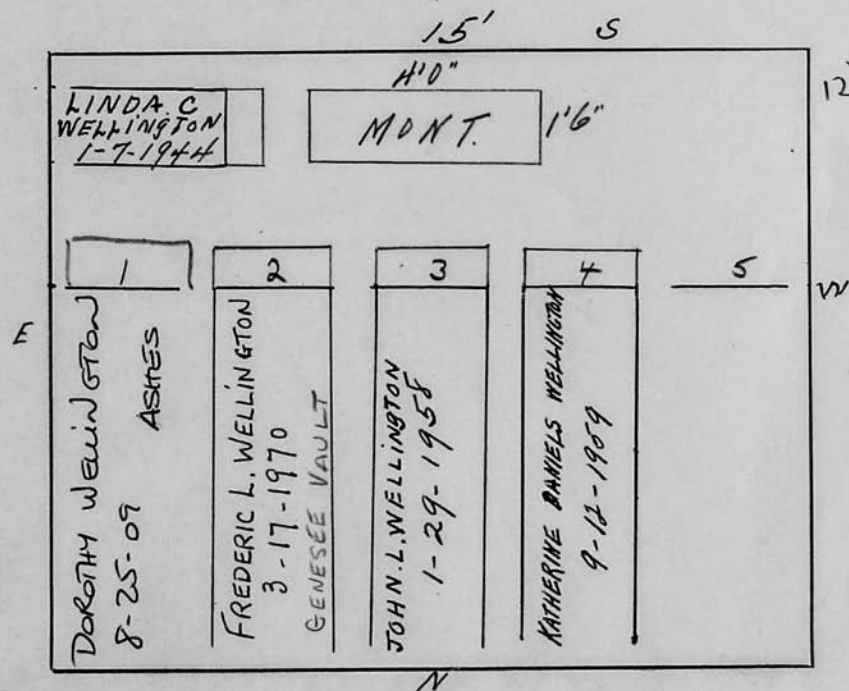 15' S
4'0"
12'
LINDA. C
WELLINGTON
1-7-1944
MONT.
1'6"
1
2
3
4
5
E
W
DOROTHY WELLINGTON
8-25-09
ASHES
FREDERIC L. WELLINGTON
3-17-1970
GENESEE VAULT
JOHN. L. WELLINGTON
1-29-1958
KATHERINE DANIELS WELLINGTON
9-12-1959
N